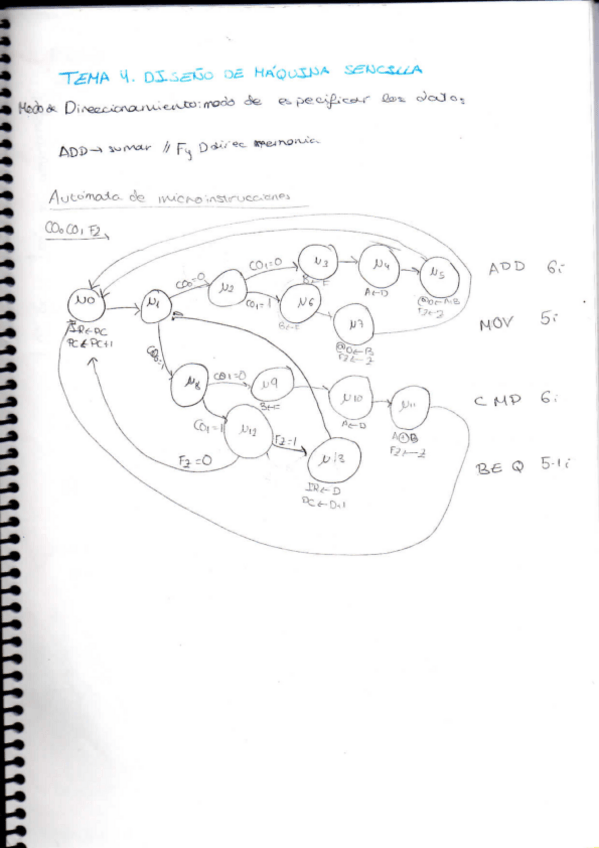 TEMA 4. DISEÑO DE MÁQUINA SENCILLA
Modo de Direccionamiento: modo de especificar los datos
ADD → sumar // F y D direc memoria
Autómata de microinstrucciones
CO₀ CO₁ FZ
μ0
IR←PC
PC←PC+1
μ1
CO₀=0
μ2
CO₁=0
μ3
B←F
μ4
A←D
μ5
@D←A+B
FZ←Z
ADD 6i
CO₁=1
μ6
B←F
μ7
@D←B
FZ←Z
MOV 5i
CO₀=1
μ8
CO₁=0
μ9
B←F
μ10
A←D
μ11
A⊕B
FZ←Z
CMP 6i
CO₁=1
μ12
FZ=0
FZ=1
μ13
IR←D
PC←D+1
BEQ